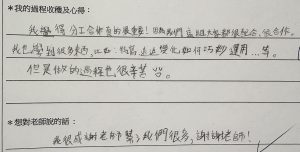 *我的過程收穫及心得：
我覺得分工合作真的很重要！因為我們這組大家都很配合，很合作。
我也學到很多東西，比如：特寫、遠近變化如何巧妙運用…等。
但是做的過程也很辛苦
*想對老師說的話：
我很感謝老師幫了我們很多，謝謝老師！